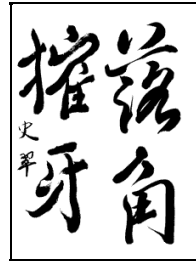 落角
摧牙
史翠